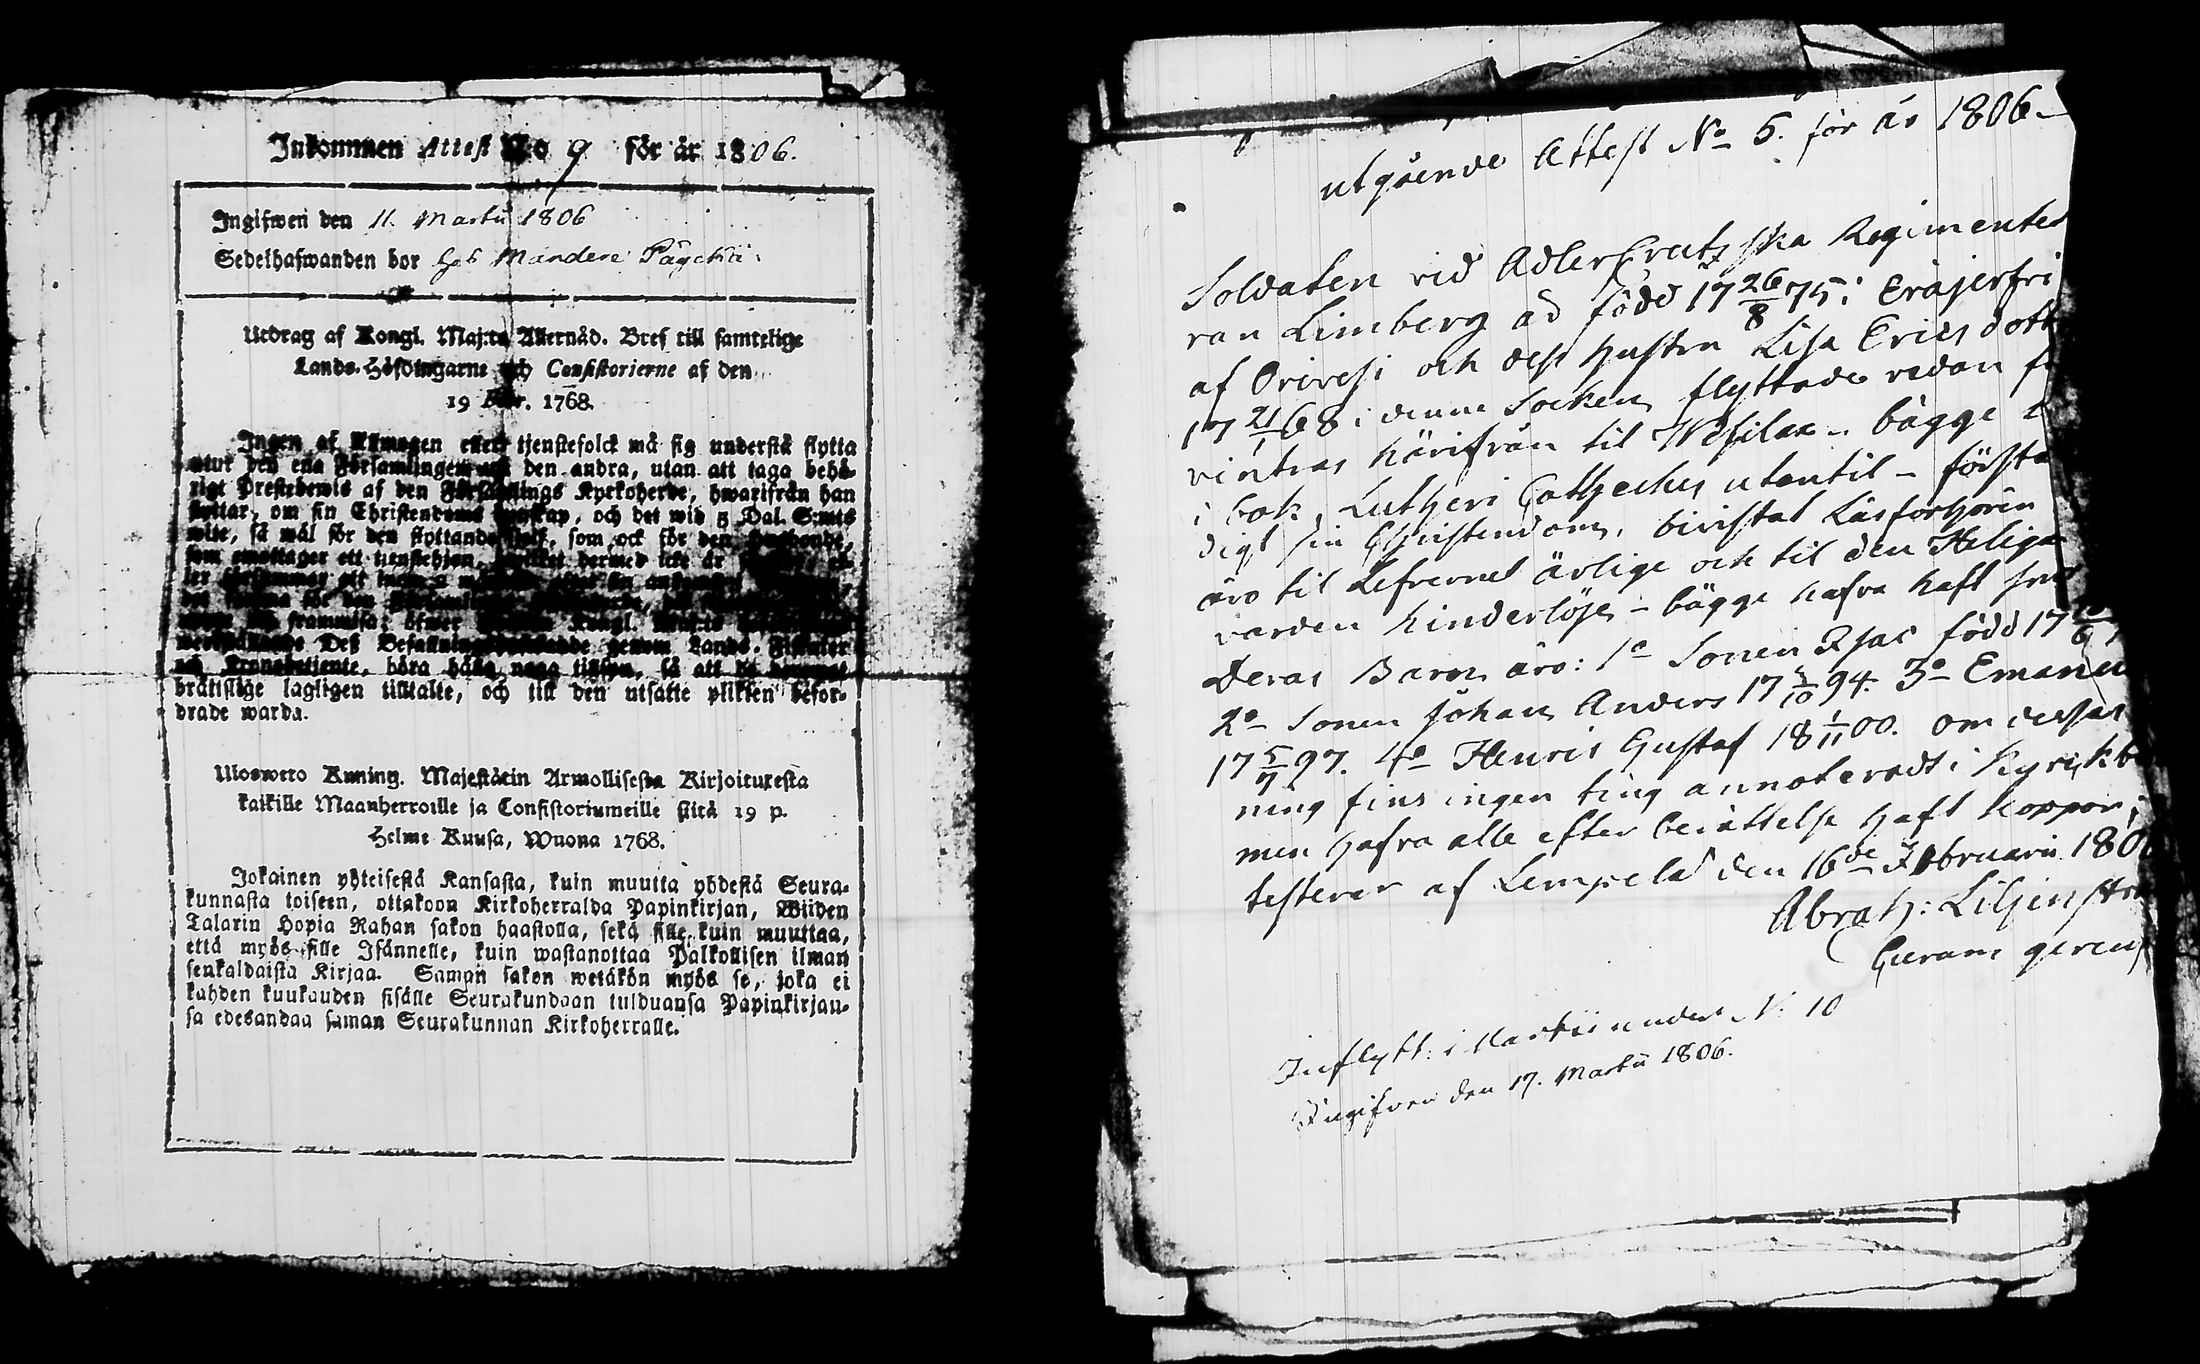 Inkommen Attest No 9 för år 1806.
Ingifwen den 11. Martii 1806
Sedelhafwanden bor hos Mandere Pägekä.
Utdrag af Kongl. Maj:ts Allernåd. Bref till samtelige
Lands-Höfdingarne och Consistorierne af den
19 Febr. 1768.
Ingen af Allmogen eller tjenstefolck må sig understå flytta
utur den ena Församlingen och den andra, utan att taga behö-
rigt Prestebewis af den Församlings Kyrkoherde, hwarifrån han
flyttar, om sin Christendoms kunskap, och det wid 5 Dal. S:mts
wite, så wäl för den flyttande sielf, som ock för den Husbonde,
som emottager ett tienstehjon, hwilket dermed icke är
framwisa; öfwer Kongl. Maj:ts
Deß Befallningshafwande genom Lands-Fiskaler
och Kronobetiente, böra hålla noga tillsyn, så att de
brätslige lagligen tilltalte, och till den utsatte plikten befor-
drade warda.
Uloswето Kuning. Majestätin Armollisesta Kirjoituxesta
kaikille Maanherroille ja Consistoriumeille siitä 19 p.
Helme Kuusa, Wuona 1768.
Jokainen yhteisestä Kansasta, kuin muutta yhdestä Seura-
kunnasta toiseen, ottakoon Kirkoherralda Papinkirjan, Wiiden
Talarin Hopia Rahan sakon haastolla, sekä sille, kuin muuttaa,
että myös sille Isännelle, kuin wastanottaa Palkollisen ilman
senkaldaista Kirjaa. Saman sakon wetäkön myös se, joka ei
kahden kuukauden sisälle Seurakundaan tulduansa Papinkirjan-
sa edesandaa saman Seurakunnan Kirkoherralle.
utgående Attest No 5. för år 1806.
Soldaten vid Adlercreutzska Regimentet
ran Limberg är född 17 26/8 75 i Eräjerfvi
af Orivesi och dess hustru Lisa Ericsdott
17 21/1 68 i denne Socken, flyttade redan f
vintras härifrån til Wesilax - bägge
i bok, Lutheri Cathechis utantil - första
digt sin Christendom, bivistat Läsförhören
äro til Lefvernet ärlige och til den Heliga
varden hinderlöse - bägge hafva haft
Deras Barn äro: 1o Sonen Isac född 17
2o Sonen Johan Anders 17 5/10 94. 3o Emanu
17 5/7 97. 4o Henric Gustaf 18 1/11 00. om dessas
ning fins ingen ting annoteradt i Kyrickb
men hafva alle efter berättelse haft koppor,
testerar af Lempelä den 16de Februarii 180
Abrah: Liljenstr
Curam gerens
Inflytt: i Martii under N: 10
Ingifven den 17. Martii 1806.